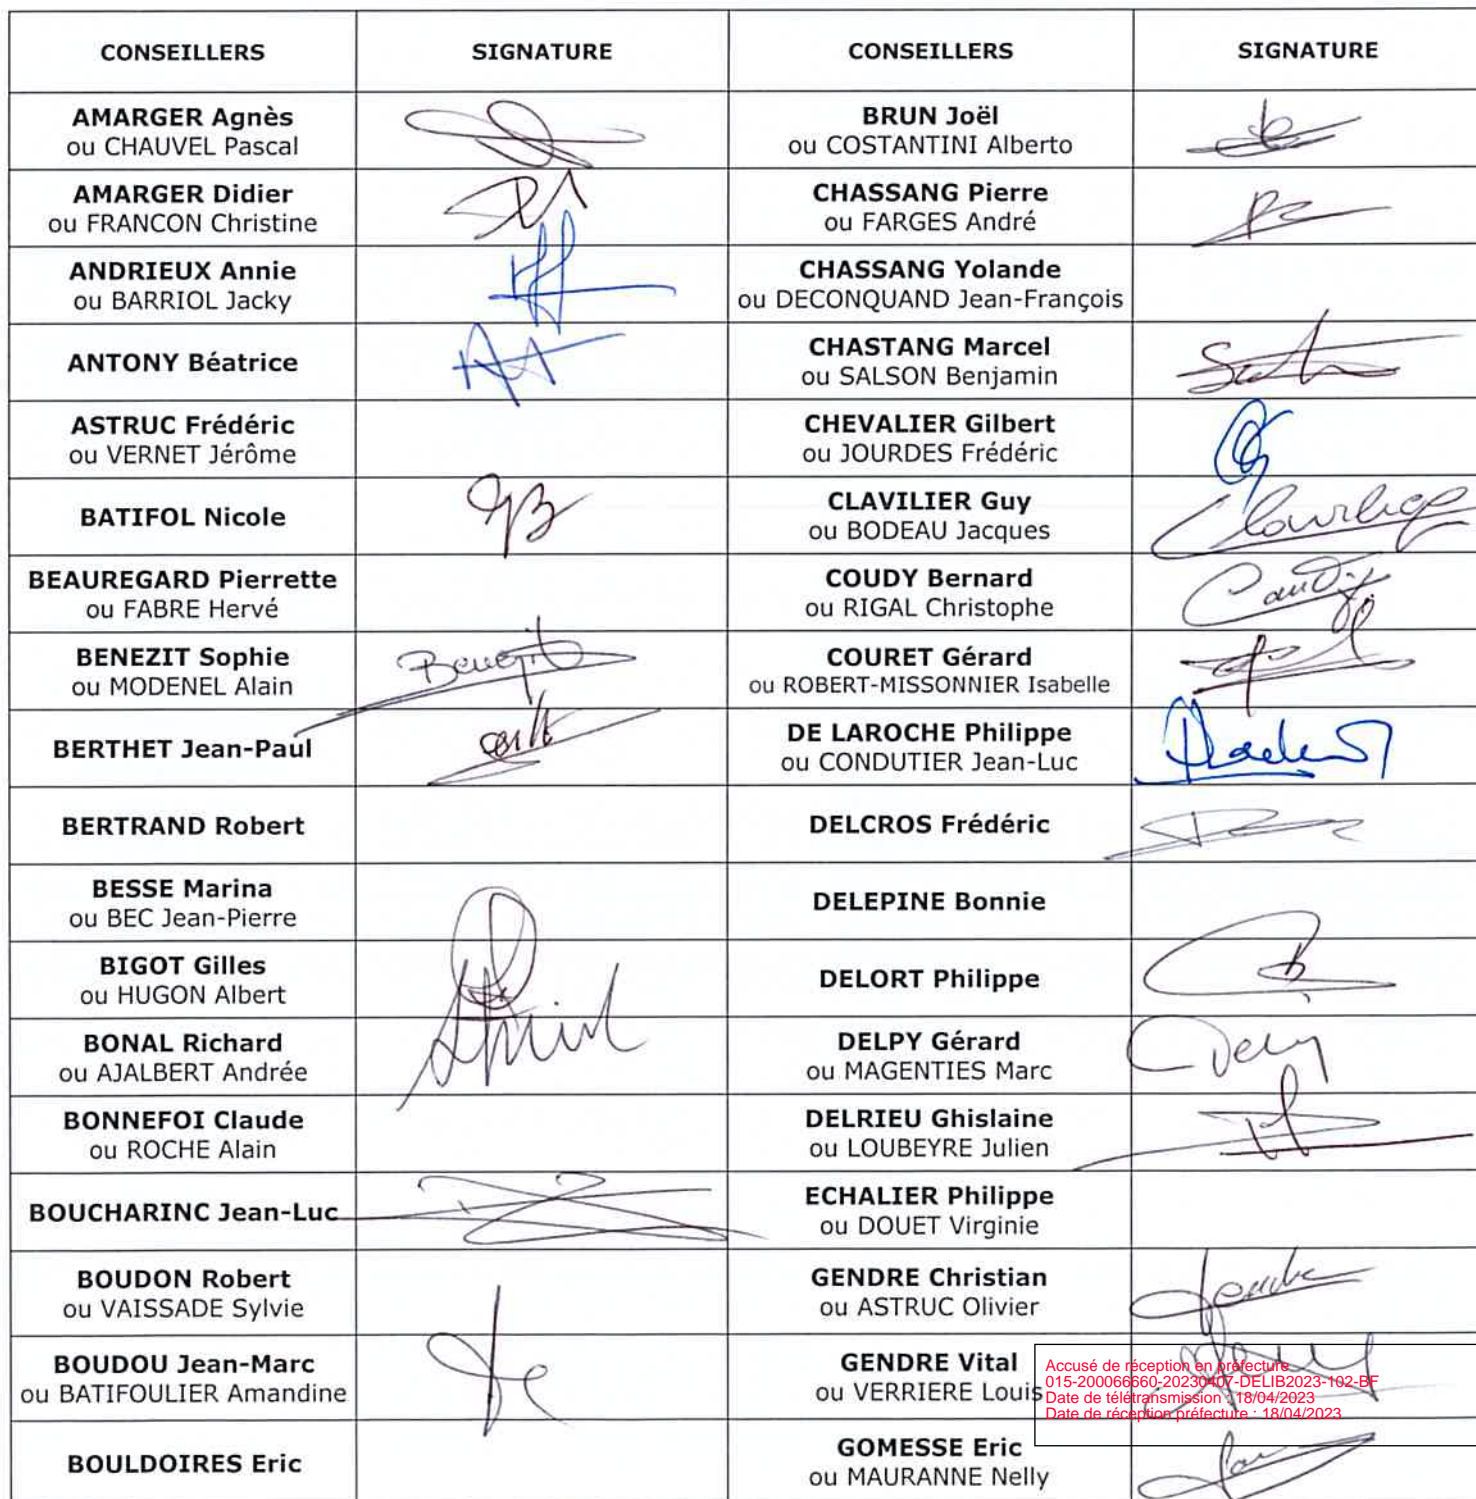 CONSEILLERS SIGNATURE CONSEILLERS SIGNATURE
AMARGER Agnès
ou CHAUVEL Pascal
BRUN Joël
ou COSTANTINI Alberto
AMARGER Didier
ou FRANCON Christine
CHASSANG Pierre
ou FARGES André
ANDRIEUX Annie
ou BARRIOL Jacky
CHASSANG Yolande
ou DECONQUAND Jean-François
ANTONY Béatrice
CHASTANG Marcel
ou SALSON Benjamin
ASTRUC Frédéric
ou VERNET Jérôme
CHEVALIER Gilbert
ou JOURDES Frédéric
BATIFOL Nicole
CLAVILIER Guy
ou BODEAU Jacques
BEAUREGARD Pierrette
ou FABRE Hervé
COUDY Bernard
ou RIGAL Christophe
BENEZIT Sophie
ou MODENEL Alain
Benezit
COURET Gérard
ou ROBERT-MISSONNIER Isabelle
BERTHET Jean-Paul
DE LAROCHE Philippe
ou CONDUTIER Jean-Luc
BERTRAND Robert
DELCROS Frédéric
BESSE Marina
ou BEC Jean-Pierre
DELEPINE Bonnie
BIGOT Gilles
ou HUGON Albert
DELORT Philippe
BONAL Richard
ou AJALBERT Andrée
DELPY Gérard
ou MAGENTIES Marc
BONNEFOI Claude
ou ROCHE Alain
DELRIEU Ghislaine
ou LOUBEYRE Julien
BOUCHARINC Jean-Luc
ECHALIER Philippe
ou DOUET Virginie
BOUDON Robert
ou VAISSADE Sylvie
GENDRE Christian
ou ASTRUC Olivier
BOUDOU Jean-Marc
ou BATIFOULIER Amandine
GENDRE Vital
ou VERRIERE Louis
Accusé de réception en préfecture
015-200066660-20230407-DELIB2023-102-BF
Date de télétransmission : 18/04/2023
Date de réception préfecture : 18/04/2023
BOULDOIRES Eric
GOMESSE Eric
ou MAURANNE Nelly